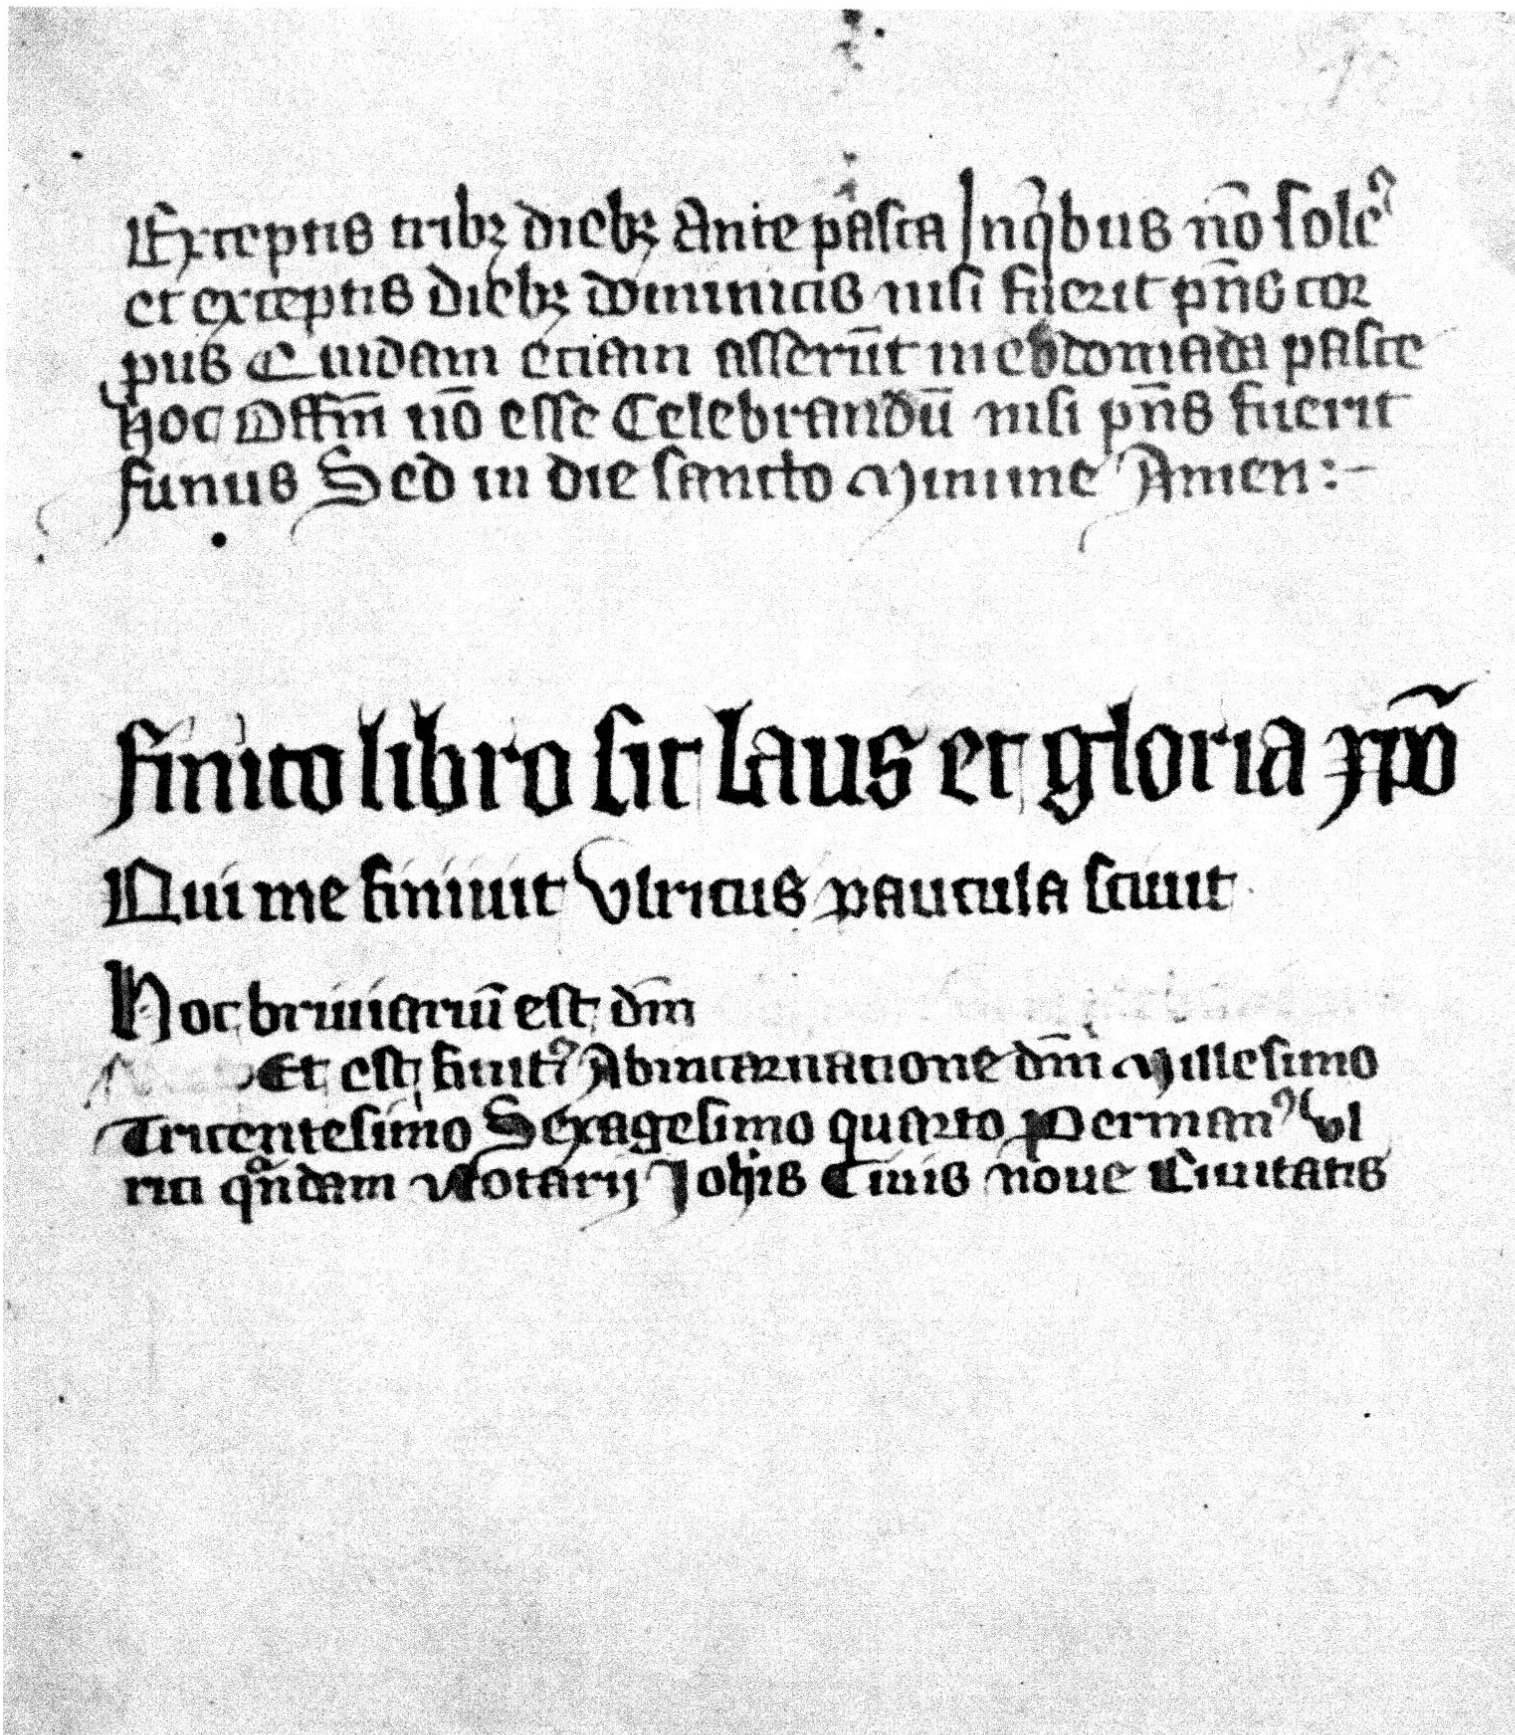 Exceptis tribꝫ diebꝫ Ante pasca Jn qͥbus nō solet᷒
et exceptis diebꝫ dominicis nisi fuerit pn̄s cor
pus Quidam eciam asserūt in ebdomada pasce
hoc Offm̄ nō esse Celebrandū nisi pn̄s fuerit
funus Sed in die sancto Minime Amen :-
finito libro sit laus et gloria xp̄o
Qui me finiuit Vlricus paucula sciuit
Hoc briuiariū est dn̄i
Et est finit᷒ Ab incarnatione dn̄i Millesimo
Tricentesimo Sexagesimo quarto Per man᷒ Vl
rici qn̄dam Notarij Joh̄is Ciuis noue Ciuitatis